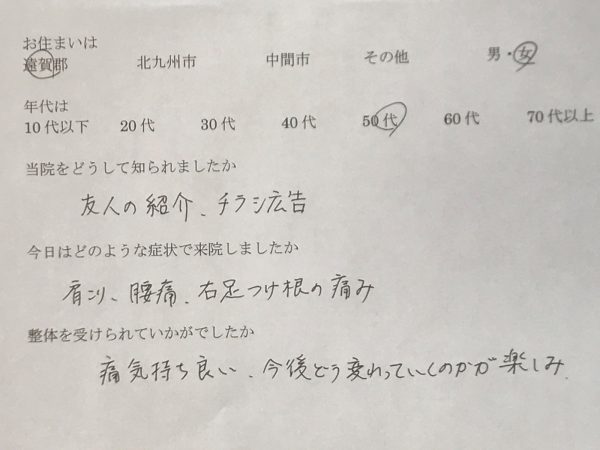 お住まいは
遠賀郡 北九州市 中間市 その他 男・女
年代は
10代以下 20代 30代 40代 50代 60代 70代以上
当院をどうして知られましたか
友人の紹介、チラシ広告
今日はどのような症状で来院しましたか
肩こり、腰痛、右足つけ根の痛み
整体を受けられていかがでしたか
痛気持ち良い、今後どう変わっていくのかが楽しみ.